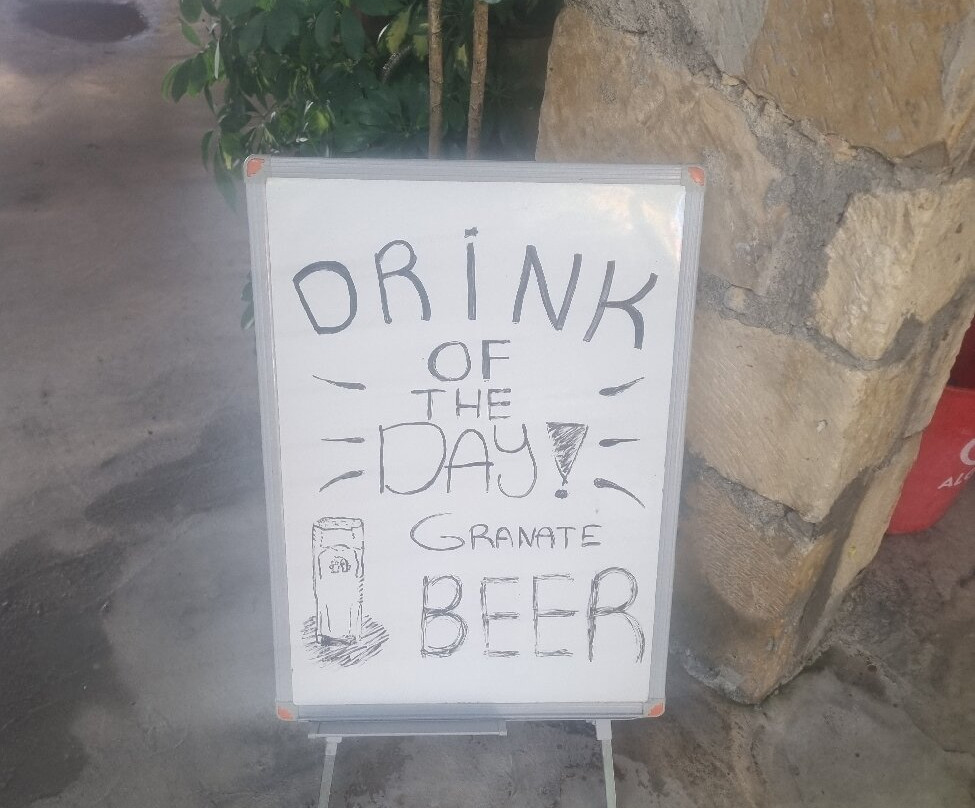 DRiNK
OF
THE
DAY!
GRANATE
BEER